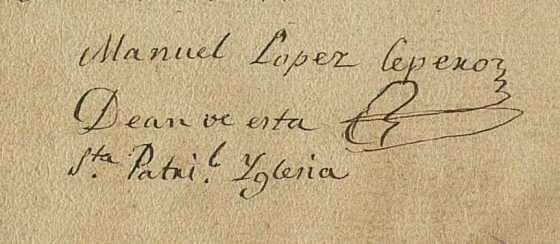 Manuel Lopez Cepero
Dean de esta
S.ta Patri.l Yglesia